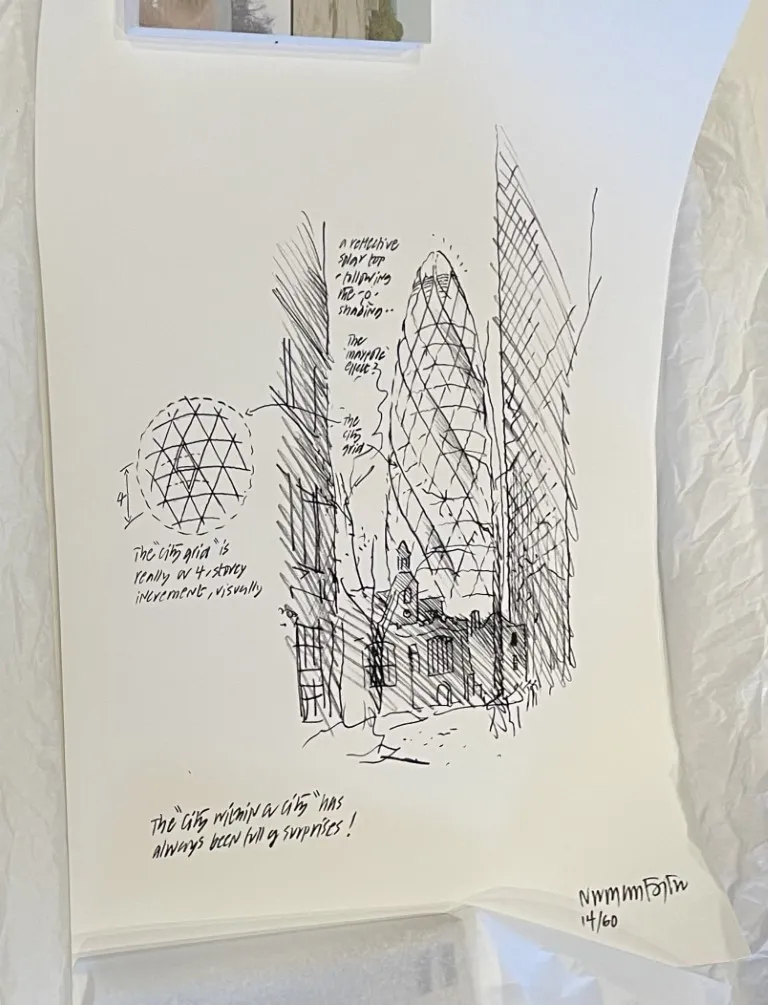 a reflective
solar top
- following
the -0-
shading..
The
'maypole'
effect?
the
city
grid
4
The "city grid" is
really a 4, storey
increment, visually
The "City within a City" has
always been full of surprises!
Norman Foster
14/60